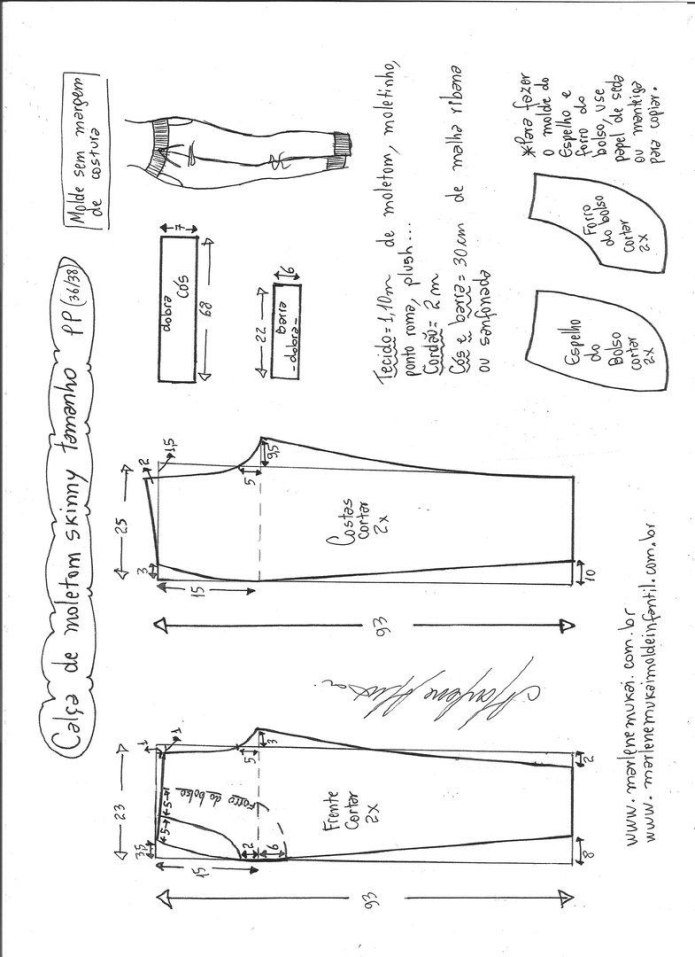 Calça de moletom skinny tamanho PP (36/38)
Molde sem margem
de costura
23
3,5
5
5
1
1
Forro do bolso
15
2
6
5
3
Frente
Cortar
2x
8
2
93
25
3
2
1,5
15
5
9,5
Costas
cortar
2x
10
93
dobra
cós
7
68
barra
-dobra-
6
22
Tecido = 1,10m de moletom, moletinho,
ponto roma, plush...
Cordão = 2m
Cós e barra = 30cm de malha ribana
ou sanfonada
*Para fazer
o molde do
Espelho e
forro do
bolso, use
papel de seda
ou manteiga
para copiar.
Espelho
do
Bolso
cortar
2x
Forro
do bolso
cortar
2x
www.marlenemukai.com.br
www.marlenemukaimoldeinfantil.com.br